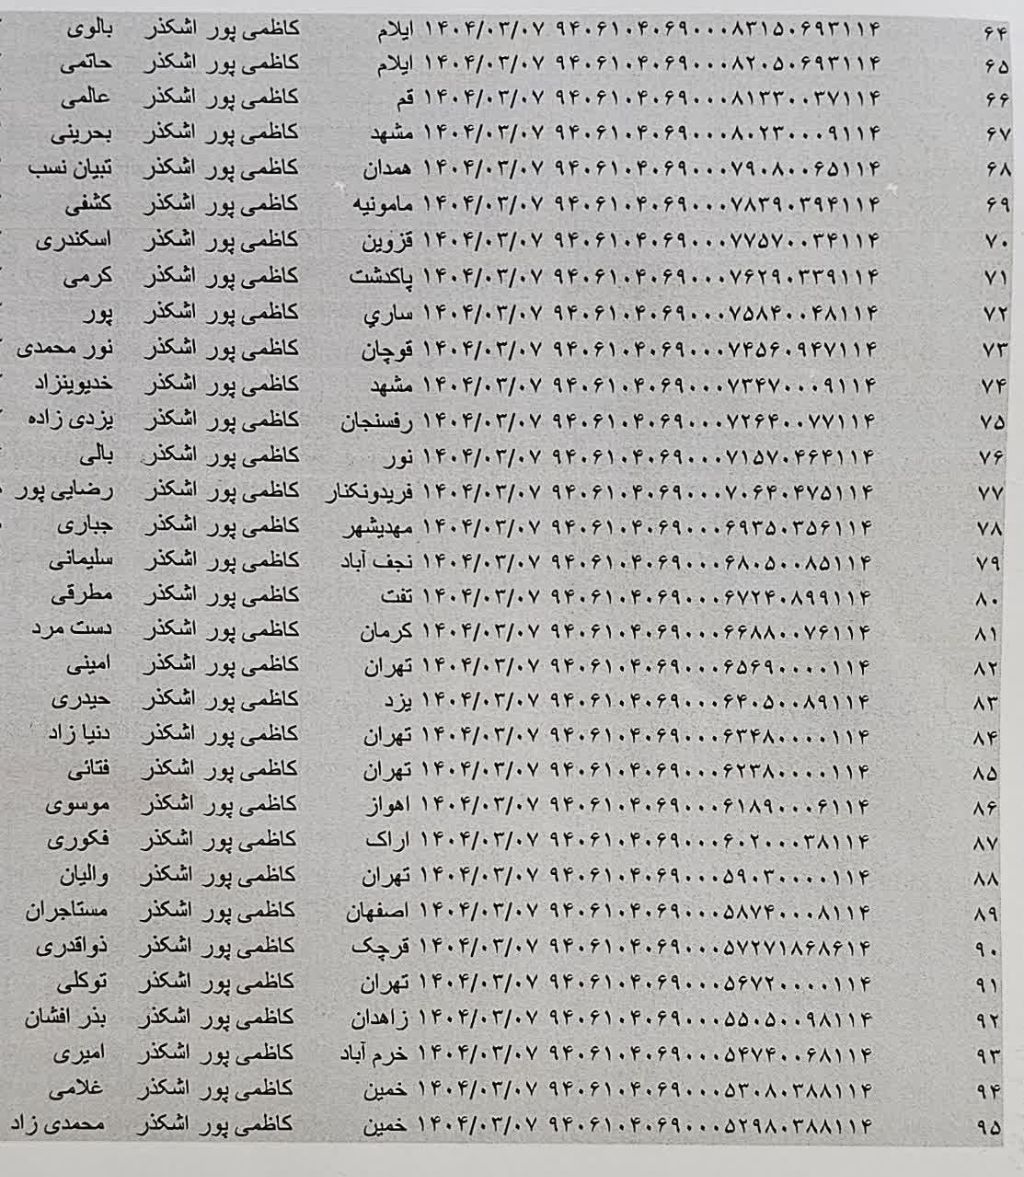 ۶۴ ۹۴۰۶۱۰۴۰۶۹۰۰۰۸۳۱۵۰۶۹۳۱۱۴ ۱۴۰۴/۰۳/۰۷ ایلام کاظمی پور اشکذر بالوی
۶۵ ۹۴۰۶۱۰۴۰۶۹۰۰۰۸۲۰۵۰۶۹۳۱۱۴ ۱۴۰۴/۰۳/۰۷ ایلام کاظمی پور اشکذر حاتمی
۶۶ ۹۴۰۶۱۰۴۰۶۹۰۰۰۸۱۳۳۰۰۳۷۱۱۴ ۱۴۰۴/۰۳/۰۷ قم کاظمی پور اشکذر عالمی
۶۷ ۹۴۰۶۱۰۴۰۶۹۰۰۰۸۰۲۳۰۰۰۹۱۱۴ ۱۴۰۴/۰۳/۰۷ مشهد کاظمی پور اشکذر بحرینی
۶۸ ۹۴۰۶۱۰۴۰۶۹۰۰۰۷۹۰۸۰۰۶۵۱۱۴ ۱۴۰۴/۰۳/۰۷ همدان کاظمی پور اشکذر تبیان نسب
۶۹ ۹۴۰۶۱۰۴۰۶۹۰۰۰۷۸۳۹۰۳۹۴۱۱۴ ۱۴۰۴/۰۳/۰۷ مامونیه کاظمی پور اشکذر کشفی
۷۰ ۹۴۰۶۱۰۴۰۶۹۰۰۰۷۷۵۷۰۰۳۴۱۱۴ ۱۴۰۴/۰۳/۰۷ قزوین کاظمی پور اشکذر اسکندری
۷۱ ۹۴۰۶۱۰۴۰۶۹۰۰۰۷۶۲۹۰۳۳۹۱۱۴ ۱۴۰۴/۰۳/۰۷ پاکدشت کاظمی پور اشکذر کرمی
۷۲ ۹۴۰۶۱۰۴۰۶۹۰۰۰۷۵۸۴۰۰۴۸۱۱۴ ۱۴۰۴/۰۳/۰۷ ساري کاظمی پور اشکذر پور
۷۳ ۹۴۰۶۱۰۴۰۶۹۰۰۰۷۴۵۶۰۹۴۷۱۱۴ ۱۴۰۴/۰۳/۰۷ قوچان کاظمی پور اشکذر نور محمدی
۷۴ ۹۴۰۶۱۰۴۰۶۹۰۰۰۷۳۴۷۰۰۰۹۱۱۴ ۱۴۰۴/۰۳/۰۷ مشهد کاظمی پور اشکذر خدیوینزاد
۷۵ ۹۴۰۶۱۰۴۰۶۹۰۰۰۷۲۶۴۰۰۷۷۱۱۴ ۱۴۰۴/۰۳/۰۷ رفسنجان کاظمی پور اشکذر یزدی زاده
۷۶ ۹۴۰۶۱۰۴۰۶۹۰۰۰۷۱۵۷۰۴۶۴۱۱۴ ۱۴۰۴/۰۳/۰۷ نور کاظمی پور اشکذر بالی
۷۷ ۹۴۰۶۱۰۴۰۶۹۰۰۰۷۰۶۴۰۴۷۵۱۱۴ ۱۴۰۴/۰۳/۰۷ فریدونکنار کاظمی پور اشکذر رضایی پور
۷۸ ۹۴۰۶۱۰۴۰۶۹۰۰۰۶۹۳۵۰۳۵۶۱۱۴ ۱۴۰۴/۰۳/۰۷ مهدیشهر کاظمی پور اشکذر جباری
۷۹ ۹۴۰۶۱۰۴۰۶۹۰۰۰۶۸۰۵۰۰۸۵۱۱۴ ۱۴۰۴/۰۳/۰۷ نجف آباد کاظمی پور اشکذر سلیمانی
۸۰ ۹۴۰۶۱۰۴۰۶۹۰۰۰۶۷۲۴۰۸۹۹۱۱۴ ۱۴۰۴/۰۳/۰۷ تفت کاظمی پور اشکذر مطرقی
۸۱ ۹۴۰۶۱۰۴۰۶۹۰۰۰۶۶۸۸۰۰۷۶۱۱۴ ۱۴۰۴/۰۳/۰۷ کرمان کاظمی پور اشکذر دست مرد
۸۲ ۹۴۰۶۱۰۴۰۶۹۰۰۰۶۵۶۹۰۰۰۰۱۱۴ ۱۴۰۴/۰۳/۰۷ تهران کاظمی پور اشکذر امینی
۸۳ ۹۴۰۶۱۰۴۰۶۹۰۰۰۶۴۰۵۰۰۸۹۱۱۴ ۱۴۰۴/۰۳/۰۷ یزد کاظمی پور اشکذر حیدری
۸۴ ۹۴۰۶۱۰۴۰۶۹۰۰۰۶۳۴۸۰۰۰۰۱۱۴ ۱۴۰۴/۰۳/۰۷ تهران کاظمی پور اشکذر دنیا زاد
۸۵ ۹۴۰۶۱۰۴۰۶۹۰۰۰۶۲۳۸۰۰۰۰۱۱۴ ۱۴۰۴/۰۳/۰۷ تهران کاظمی پور اشکذر فتائی
۸۶ ۹۴۰۶۱۰۴۰۶۹۰۰۰۶۱۸۹۰۰۰۶۱۱۴ ۱۴۰۴/۰۳/۰۷ اهواز کاظمی پور اشکذر موسوی
۸۷ ۹۴۰۶۱۰۴۰۶۹۰۰۰۶۰۲۰۰۰۳۸۱۱۴ ۱۴۰۴/۰۳/۰۷ اراک کاظمی پور اشکذر فکوری
۸۸ ۹۴۰۶۱۰۴۰۶۹۰۰۰۵۹۰۳۰۰۰۰۱۱۴ ۱۴۰۴/۰۳/۰۷ تهران کاظمی پور اشکذر والیان
۸۹ ۹۴۰۶۱۰۴۰۶۹۰۰۰۵۸۷۴۰۰۰۸۱۱۴ ۱۴۰۴/۰۳/۰۷ اصفهان کاظمی پور اشکذر مستاجران
۹۰ ۹۴۰۶۱۰۴۰۶۹۰۰۰۵۷۲۷۱۸۶۸۶۱۴ ۱۴۰۴/۰۳/۰۷ قرچک کاظمی پور اشکذر ذواقدری
۹۱ ۹۴۰۶۱۰۴۰۶۹۰۰۰۵۶۷۲۰۰۰۰۱۱۴ ۱۴۰۴/۰۳/۰۷ تهران کاظمی پور اشکذر توکلی
۹۲ ۹۴۰۶۱۰۴۰۶۹۰۰۰۵۵۰۵۰۰۹۸۱۱۴ ۱۴۰۴/۰۳/۰۷ زاهدان کاظمی پور اشکذر بذر افشان
۹۳ ۹۴۰۶۱۰۴۰۶۹۰۰۰۵۴۷۴۰۰۶۸۱۱۴ ۱۴۰۴/۰۳/۰۷ خرم آباد کاظمی پور اشکذر امیری
۹۴ ۹۴۰۶۱۰۴۰۶۹۰۰۰۵۳۰۸۰۳۸۸۱۱۴ ۱۴۰۴/۰۳/۰۷ خمین کاظمی پور اشکذر غلامی
۹۵ ۹۴۰۶۱۰۴۰۶۹۰۰۰۵۲۹۸۰۳۸۸۱۱۴ ۱۴۰۴/۰۳/۰۷ خمین کاظمی پور اشکذر محمدی زاد